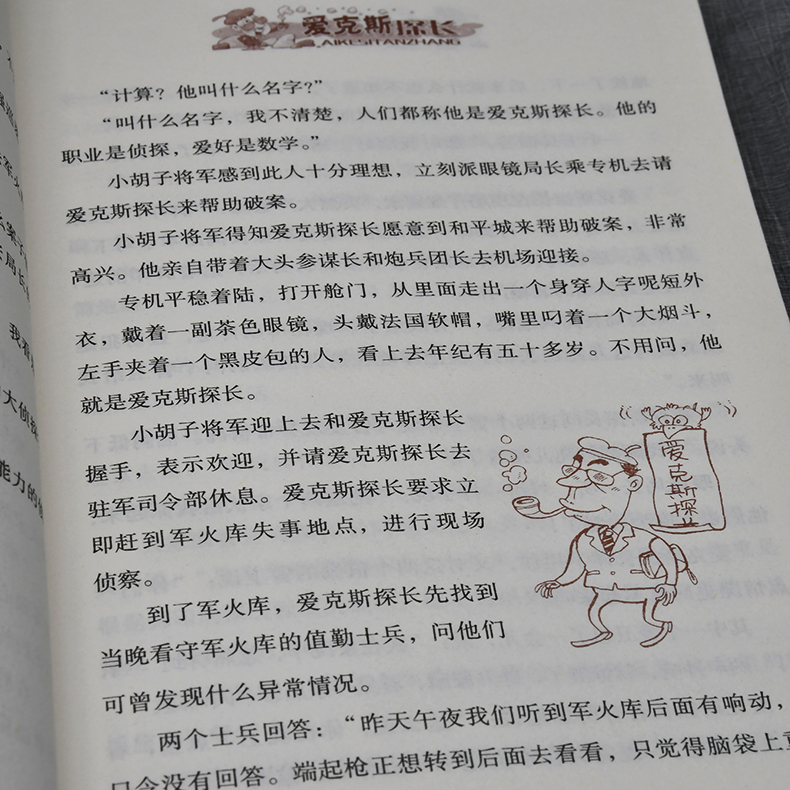 爱克斯探长
AIKESITANZHANG
“计算？他叫什么名字？”
“叫什么名字，我不清楚，人们都称他是爱克斯探长。他的
职业是侦探，爱好是数学。”
小胡子将军感到此人十分理想，立刻派眼镜局长乘专机去请
爱克斯探长来帮助破案。
小胡子将军得知爱克斯探长愿意到和平城来帮助破案，非常
高兴。他亲自带着大头参谋长和炮兵团长去机场迎接。
专机平稳着陆，打开舱门，从里面走出一个身穿人字呢短外
衣，戴着一副茶色眼镜，头戴法国软帽，嘴里叼着一个大烟斗，
左手夹着一个黑皮包的人，看上去年纪有五十多岁。不用问，他
就是爱克斯探长。
小胡子将军迎上去和爱克斯探长
握手，表示欢迎，并请爱克斯探长去
驻军司令部休息。爱克斯探长要求立
即赶到军火库失事地点，进行现场
侦察。
爱克斯探
到了军火库，爱克斯探长先找到
当晚看守军火库的值勤士兵，问他们
可曾发现什么异常情况。
两个士兵回答：“昨天午夜我们听到军火库后面有响动，
口令没有回答。端起枪正想转到后面去看看，只觉得脑袋上
大侦探
能力的